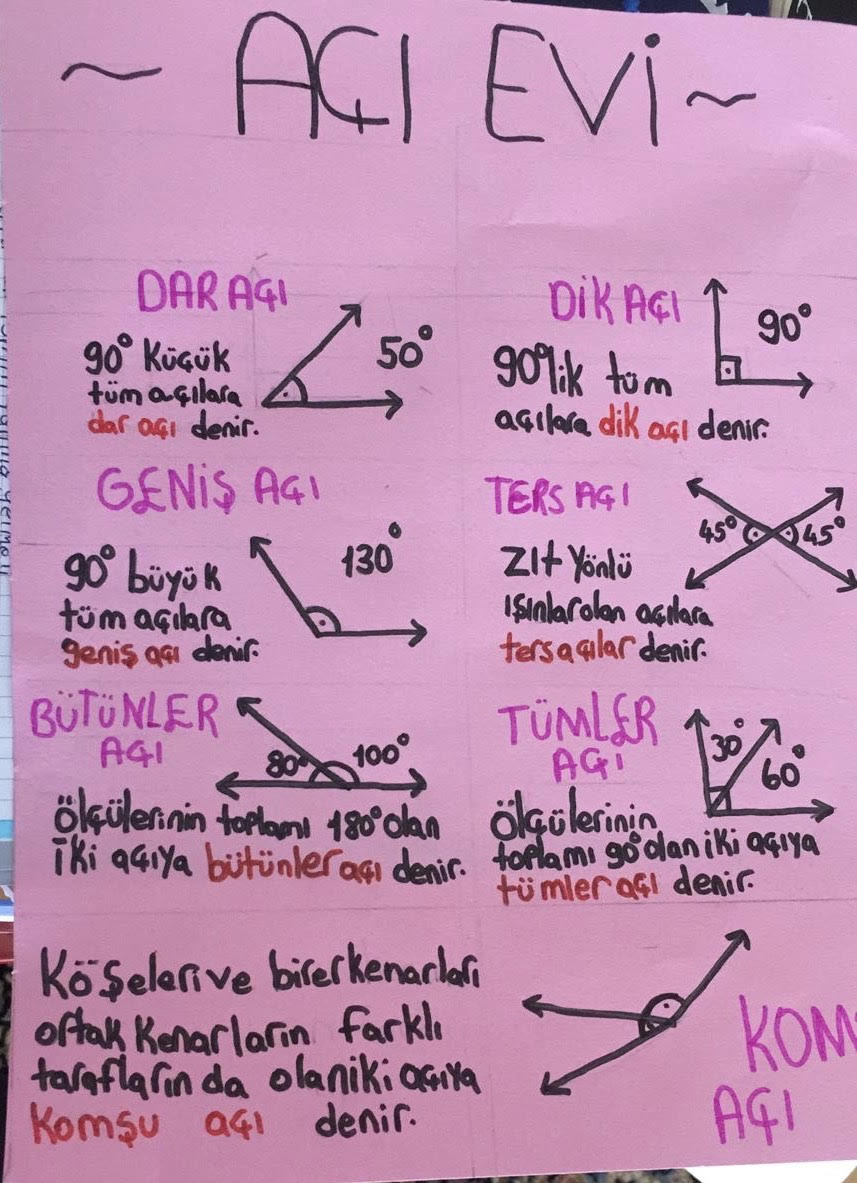 ~ AÇI EVİ ~
DAR AÇI
90° Küçük
tüm açılara
dar açı denir.
50°
DİK AÇI
90°lik tüm
açılara dik açı denir.
90°
GENİŞ AÇI
90° büyük
tüm açılara
geniş açı denir.
130°
TERS AÇI
Zıt Yönlü
ışınlar olan açılara
ters açılar denir.
45° 45°
BÜTÜNLER
AÇI
80° 100°
Ölçülerinin toplamı 180° olan
iki açıya bütünler açı denir.
TÜMLER
AÇI
30°
60°
Ölçülerinin
toplamı 90° olan iki açıya
tümler açı denir.
Köşeleri ve birer kenarları
ortak Kenarların farklı
tarafların da olan iki açıya
Komşu açı denir.
KOM
AÇI